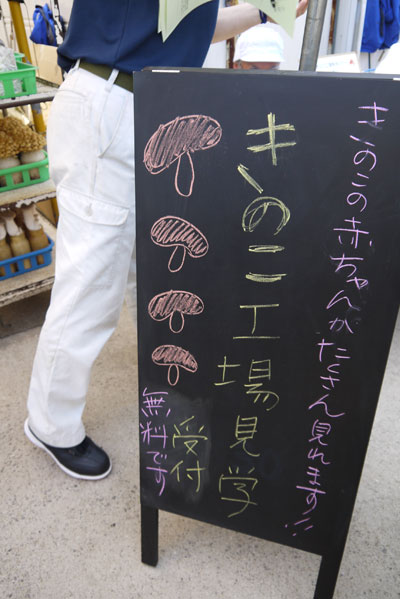 きのこの赤ちゃんがたくさん見れます!!
きのこ工場見学
受付
無料です